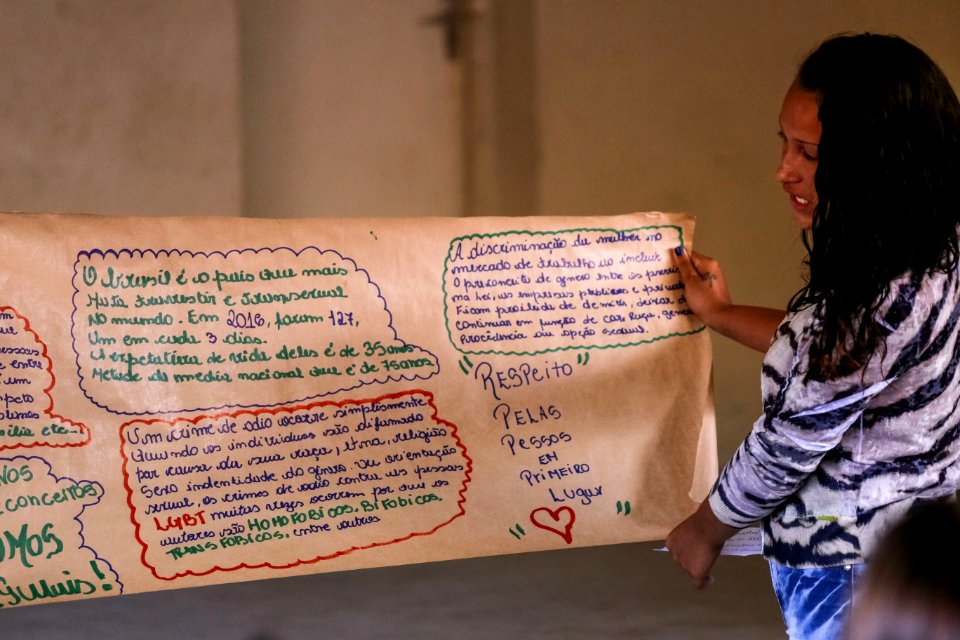 O Brasil é o país que mais
Mata travestir e Transexual
No mundo. Em 2016, foram 127,
Um em cada 3 dias.
A expectativa de vida deles é de 35 anos
Metade da media nacional que é de 75 anos
A discriminação da mulher no
mercado de trabalho ao incluir
O preconceito de gênero entre os
na lei, as empresas publicas e
Ficam proibida de demitir, deixar de
continuar em função de cor, Raça, gene
Procedencia ou opção sexual.
Um crime de odio ocorre simplismente
Quando os individuos são difamado
por causa da sua raça, Etnia, religião
Sexo indentidade do gênero. Ou orientação
sexual, os crimes de odio contra as pessoas
LGBT muitas vezes ocorrem por que os
autores são HOMOFOBICOS, BIFOBICOS,
TRANSFOBICOS, entre outros
" RESPEITO "
PELAS
PESSOS
EM
PRIMEIRO
LUGAR
um
NOS
CONCEITOS
OMOS
Guais!